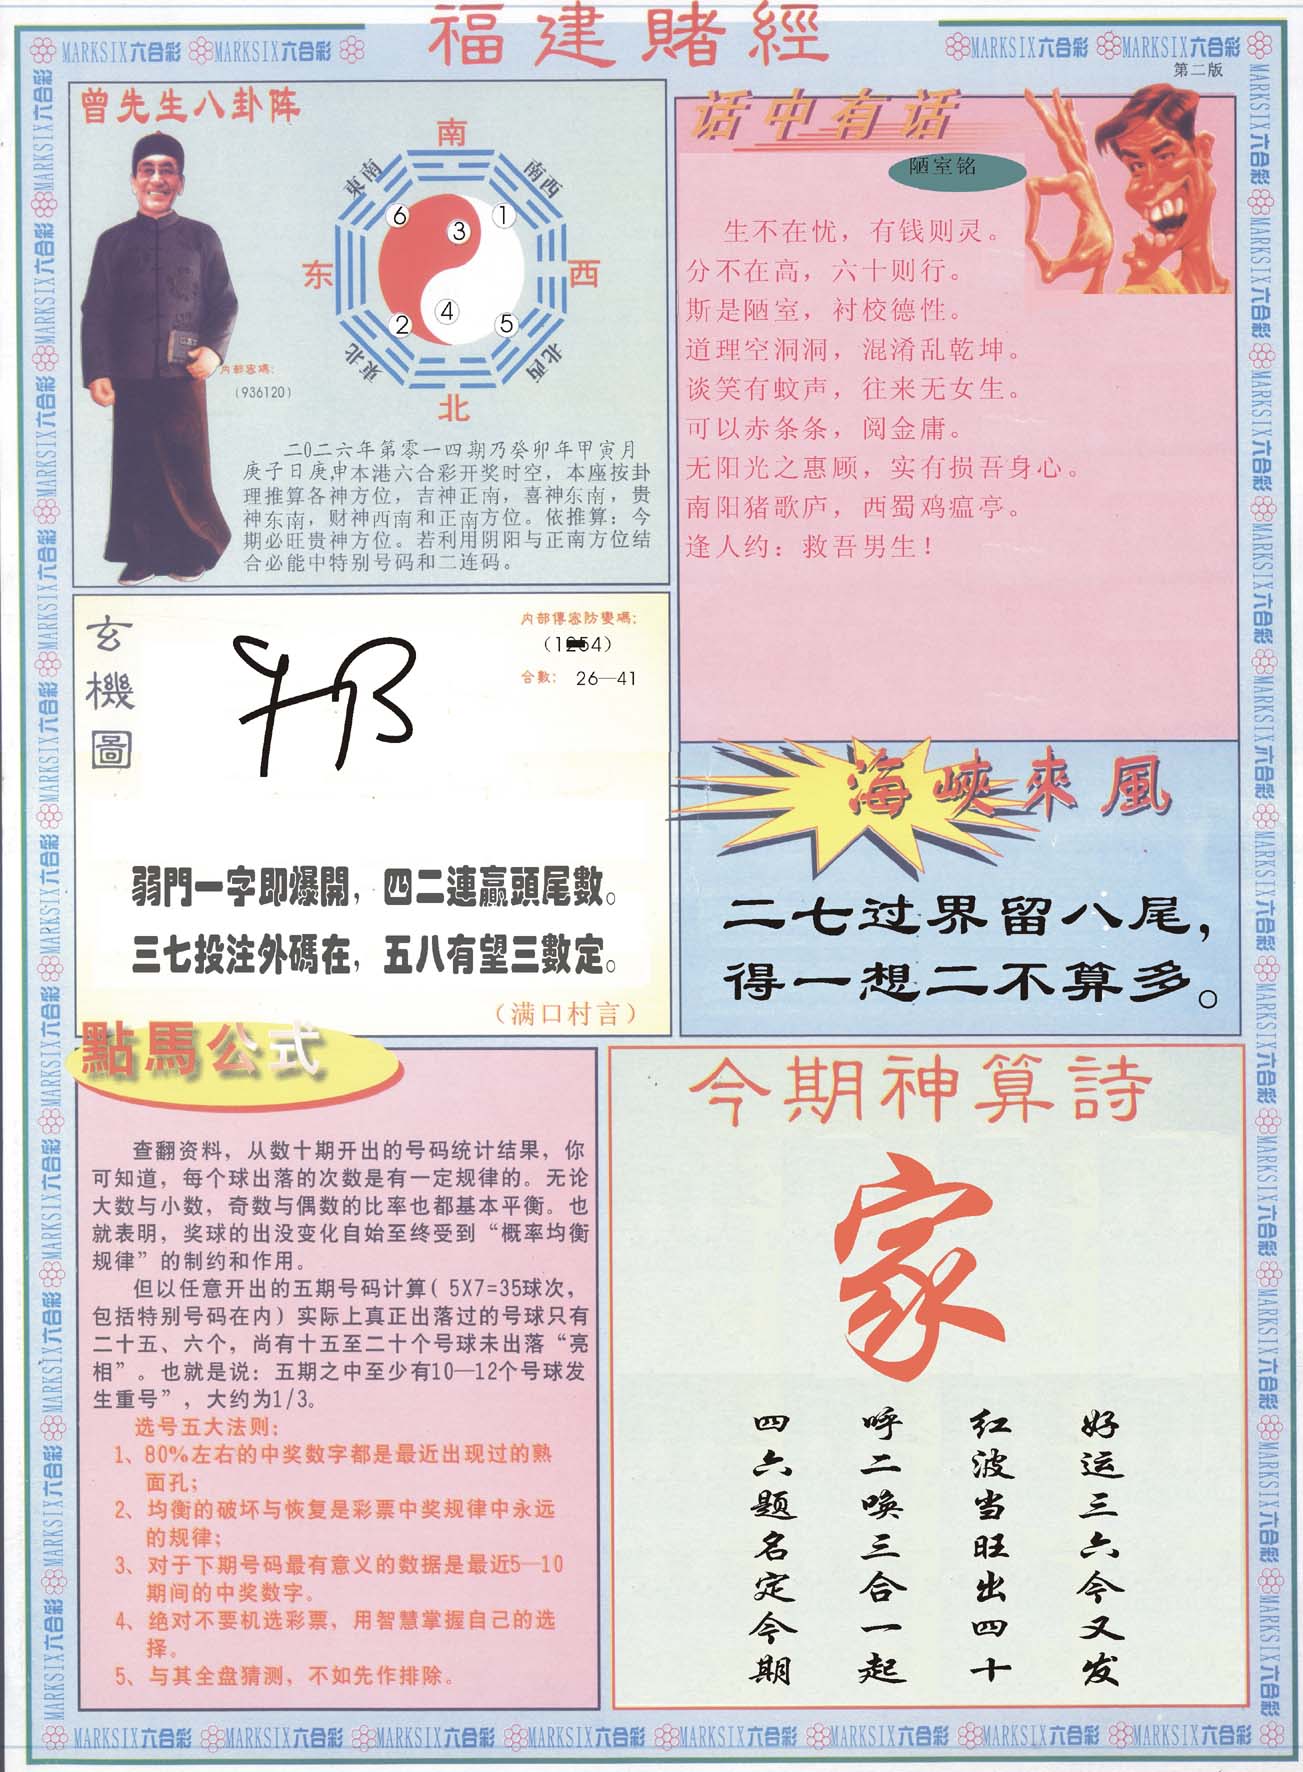 福建賭經
MARKSIX六合彩 MARKSIX六合彩
MARKSIX六合彩 MARKSIX六合彩
第二版
曾先生八卦阵
南
東南
南西
6
3
1
东
西
4
2
5
東北
北西
北
内部密碼:
(936120)
二0二六年第零一四期乃癸卯年甲寅月
庚子日庚申本港六合彩开奖时空,本座按卦
理推算各神方位,吉神正南,喜神东南,贵
神东南,财神西南和正南方位。依推算:今
期必旺贵神方位。若利用阴阳与正南方位结
合必能中特别号码和二连码。
话中有话
陋室铭
生不在忧,有钱则灵。
分不在高,六十则行。
斯是陋室,衬校德性。
道理空洞洞,混淆乱乾坤。
谈笑有蚊声,往来无女生。
可以赤条条,阅金庸。
无阳光之惠顾,实有损吾身心。
南阳猪歌庐,西蜀鸡瘟亭。
逢人约:救吾男生!
玄機圖
内部傳密防變碼:
合數: 26—41
弱門一字即爆開,四二連贏頭尾數。
三七投注外碼在,五八有望三數定。
(满口村言)
海峽來風
二七过界留八尾,
得一想二不算多。
點馬公式
查翻资料,从数十期开出的号码统计结果,你
可知道,每个球出落的次数是有一定规律的。无论
大数与小数,奇数与偶数的比率也都基本平衡。也
就表明,奖球的出没变化自始至终受到“概率均衡
规律”的制约和作用。
但以任意开出的五期号码计算( 5X7=35球次,
包括特别号码在内)实际上真正出落过的号球只有
二十五、六个,尚有十五至二十个号球未出落“亮
相”。也就是说:五期之中至少有10—12个号球发
生重号”,大约为1/3。
选号五大法则:
1、80%左右的中奖数字都是最近出现过的熟
面孔;
2、均衡的破坏与恢复是彩票中奖规律中永远
的规律;
3、对于下期号码最有意义的数据是最近5—10
期间的中奖数字。
4、绝对不要机选彩票,用智慧掌握自己的选
择。
5、与其全盘猜测,不如先作排除。
今期神算詩
家
好运三六今又发
红波当旺出四十
呼二唤三合一起
四六题名定今期
MARKSIX六合彩 MARKSIX六合彩 MARKSIX六合彩 MARKSIX六合彩 MARKSIX六合彩 MARKSIX六合彩 MARKSIX六合彩 MARKSIX六合彩